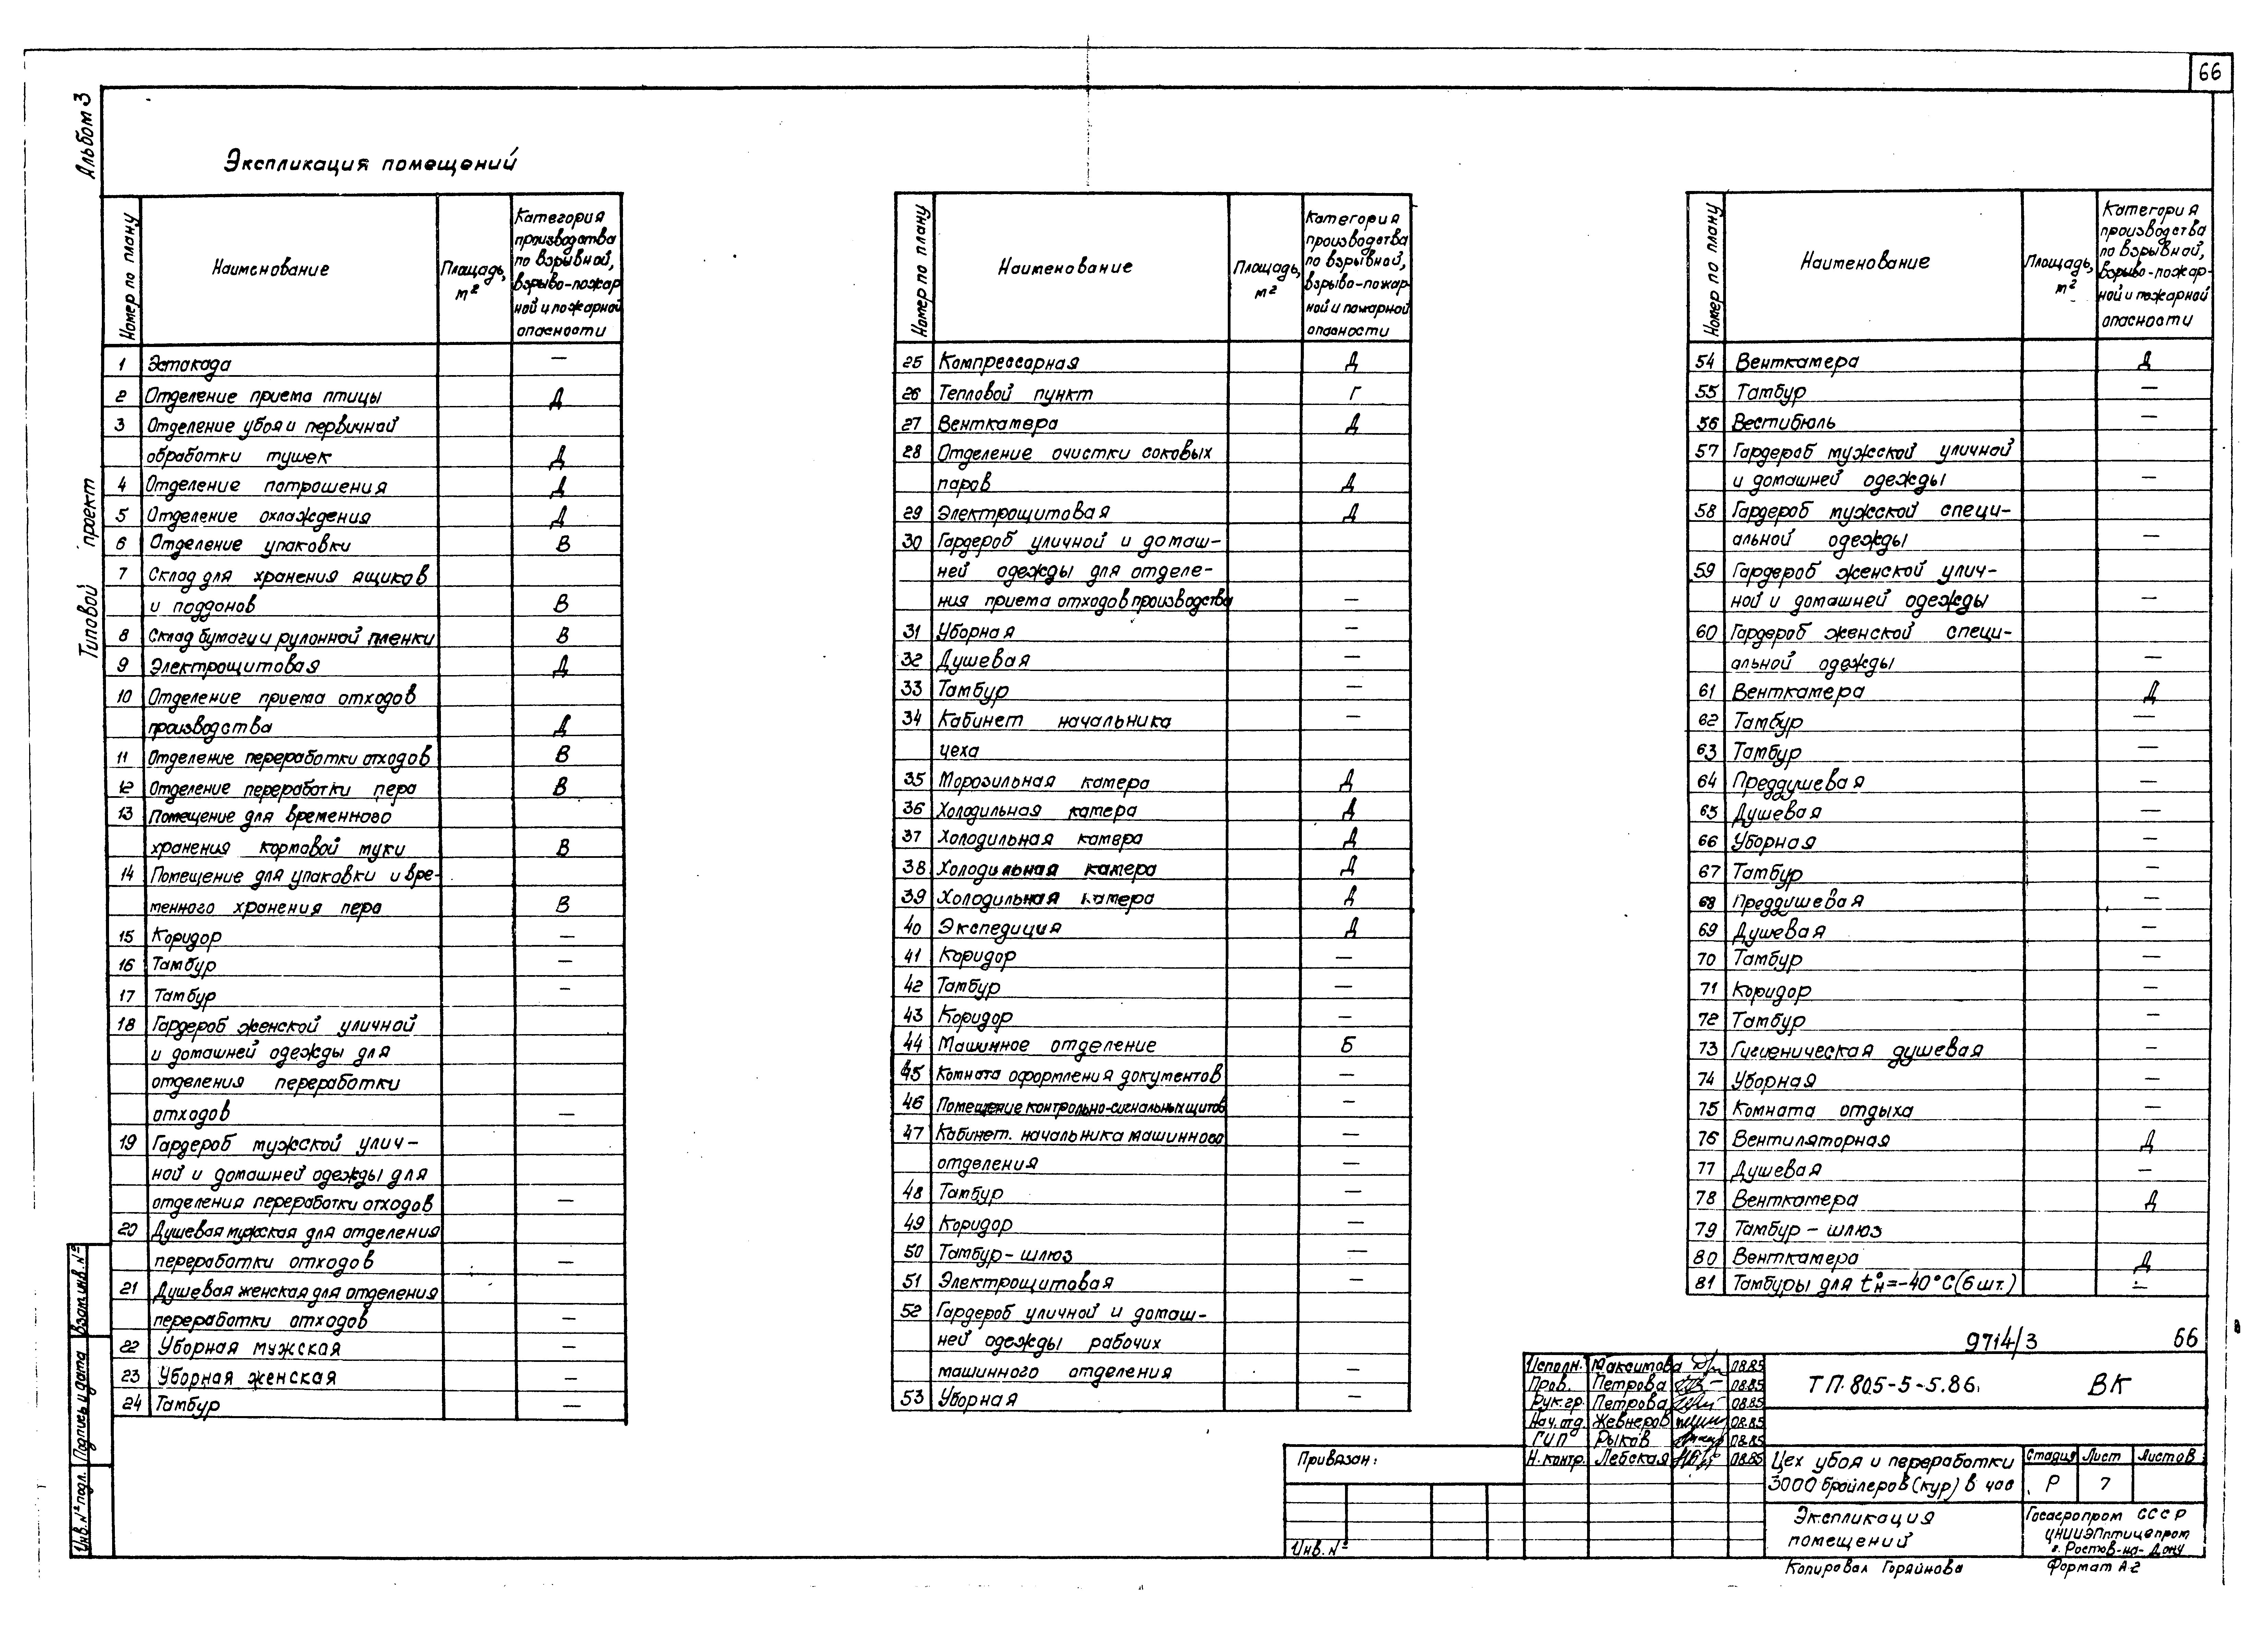 66
Альбом 3
Типовой проект
Экспликация помещений
Номер по плану
Наименование
Площадь, м²
Категория производства по взрывной, взрыво-пожарной и пожарной опасности
1 Эстакада —
2 Отделение приема птицы Д
3 Отделение убоя и первичной
обработки тушек Д
4 Отделение потрошения Д
5 Отделение охлаждения Д
6 Отделение упаковки В
7 Склад для хранения ящиков
и поддонов В
8 Склад бумаги и рулонной пленки В
9 Электрощитовая Д
10 Отделение приема отходов
производства Д
11 Отделение переработки отходов В
12 Отделение переработки пера В
13 Помещение для временного
хранения кормовой муки В
14 Помещение для упаковки и вре-
менного хранения пера В
15 Коридор —
16 Тамбур —
17 Тамбур —
18 Гардероб женской уличной
и домашней одежды для
отделения переработки
отходов —
19 Гардероб мужской улич-
ной и домашней одежды для
отделения переработки отходов —
20 Душевая мужская для отделения
переработки отходов —
21 Душевая женская для отделения
переработки отходов —
22 Уборная мужская —
23 Уборная женская —
24 Тамбур —
Номер по плану
Наименование
Площадь, м²
Категория производства по взрывной, взрыво-пожарной и пожарной опасности
25 Компрессорная Д
26 Тепловой пункт Г
27 Венткамера Д
28 Отделение очистки соковых
паров Д
29 Электрощитовая Д
30 Гардероб уличной и домаш-
ней одежды для отделе-
ния приема отходов производства —
31 Уборная —
32 Душевая —
33 Тамбур —
34 Кабинет начальника —
цеха
35 Морозильная камера Д
36 Холодильная камера Д
37 Холодильная камера Д
38 Холодильная камера Д
39 Холодильная камера Д
40 Экспедиция Д
41 Коридор —
42 Тамбур —
43 Коридор —
44 Машинное отделение Б
45 Комната оформления документов —
46 Помещение контрольно-сигнальных щитов —
47 Кабинет начальника машинного —
отделения —
48 Тамбур —
49 Коридор —
50 Тамбур-шлюз —
51 Электрощитовая —
52 Гардероб уличной и домаш-
ней одежды рабочих
машинного отделения —
53 Уборная —
Номер по плану
Наименование
Площадь, м²
Категория производства по взрывной, взрыво-пожарной и пожарной опасности
54 Венткамера Д
55 Тамбур —
56 Вестибюль —
57 Гардероб мужской уличной
и домашней одежды —
58 Гардероб мужской специ-
альной одежды —
59 Гардероб женской улич-
ной и домашней одежды —
60 Гардероб женской специ-
альной одежды —
61 Венткамера Д
62 Тамбур —
63 Тамбур —
64 Преддушевая —
65 Душевая —
66 Уборная —
67 Тамбур —
68 Преддушевая —
69 Душевая —
70 Тамбур —
71 Коридор —
72 Тамбур —
73 Гигиеническая душевая —
74 Уборная —
75 Комната отдыха —
76 Вентиляторная Д
77 Душевая —
78 Венткамера Д
79 Тамбур-шлюз
80 Венткамера Д
81 Тамбуры для t°н=-40°С (6 шт.) —
9714/3 66
Исполн. Максимова 08.85
Пров. Петрова 08.85
Рук.гр. Петрова 08.85
Нач.отд. Жевнеров 08.85
ГИП Рыков 08.85
Н.контр. Лебская 08.85
ТП.805-5-5.86. ВК
Цех убоя и переработки
3000 бройлеров (кур) в час
Стадия Лист Листов
Р 7
Экспликация
помещений
Госагропром СССР
ЦНИИЭПптицепром
г. Ростов-на-Дону
Привязан:
Инв.№
Копировал Горяйнова Формат А2
Взам.инв.№
Подпись и дата
Инв.№ подл.